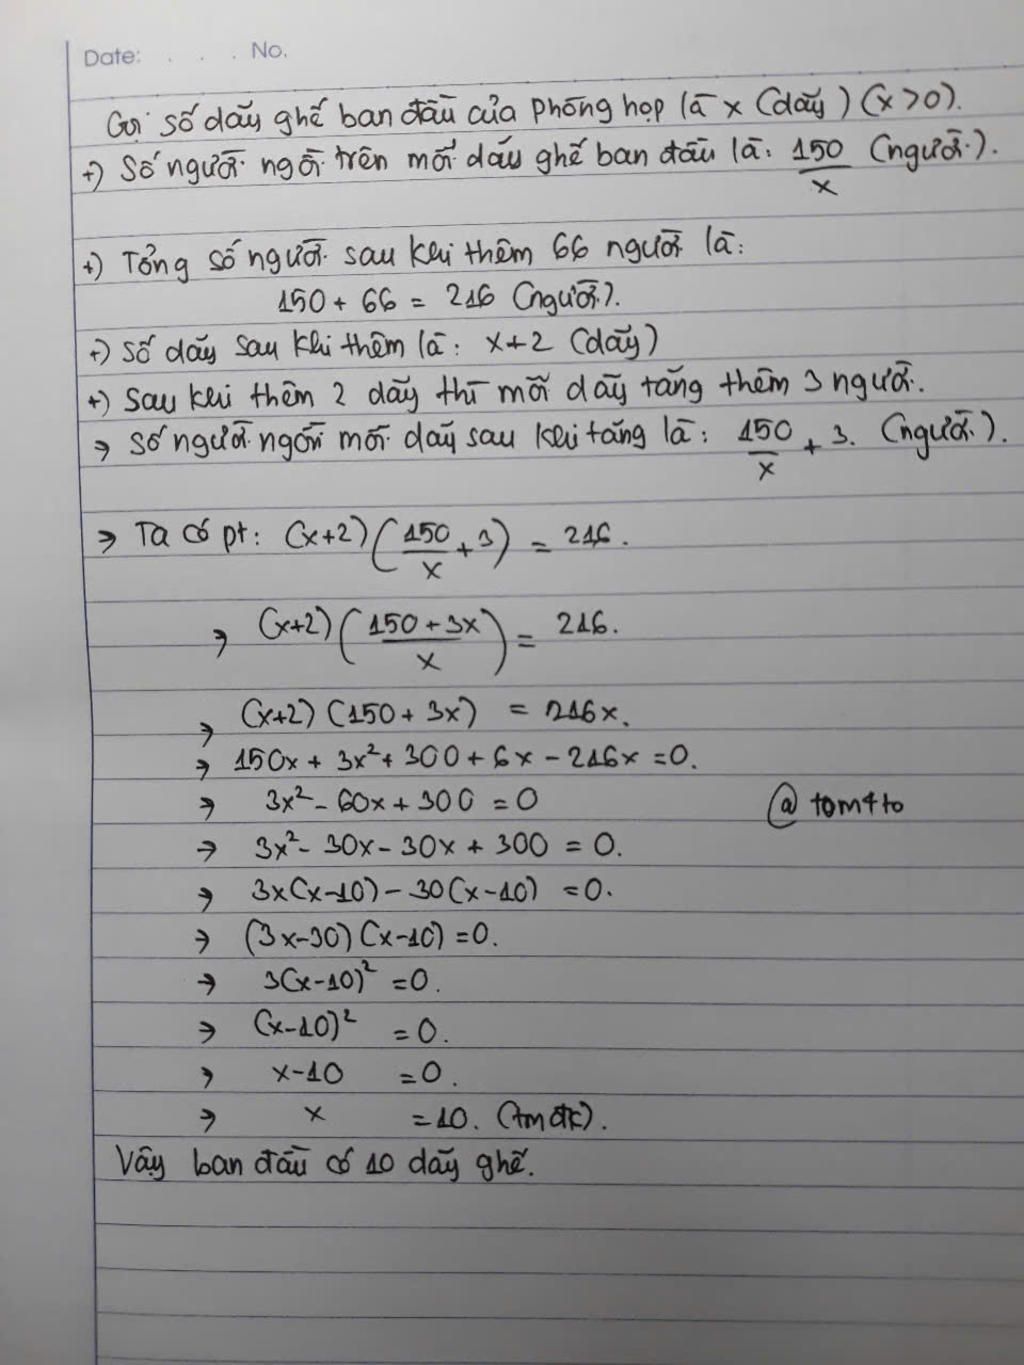 Date: . . . No.
Gọi số dãy ghế ban đầu của phòng họp là x (dãy) (x > 0).
+) Số người ngồi trên mỗi dãy ghế ban đầu là: 150/x (người).
+) Tổng số người sau khi thêm 66 người là:
150 + 66 = 216 (người).
+) Số dãy sau khi thêm là: x+2 (dãy)
+) Sau khi thêm 2 dãy thì mỗi dãy tăng thêm 3 người.
→ Số người ngồi mỗi dãy sau khi tăng là: 150/x + 3. (người).
→ Ta có pt: (x+2)(150/x + 3) = 216.
→ (x+2)((150 + 3x)/x) = 216.
→ (x+2) (150 + 3x) = 216x.
→ 150x + 3x² + 300 + 6x - 216x = 0.
→ 3x² - 60x + 300 = 0
@tom4to
→ 3x² - 30x - 30x + 300 = 0.
→ 3x(x-10) - 30(x-10) = 0.
→ (3x-30) (x-10) = 0.
→ 3(x-10)² = 0.
→ (x-10)² = 0.
→ x-10 = 0.
→ x = 10. (tmđk).
Vậy ban đầu có 10 dãy ghế.